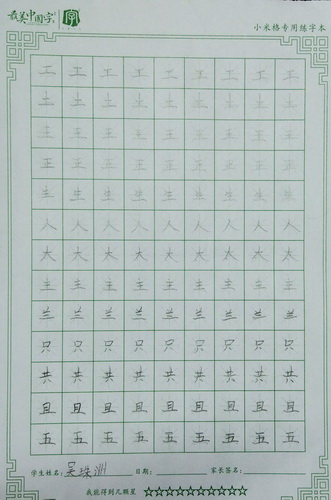 最美中国字 字
小米格专用练字本
工 工 工 工 工 工 工 工 工
土 土 土 土 土 土 土 土 土
王 王 王 王 王 王 王 王 王
正 正 正 正 正 正 正 正 正
生 生 生 生 生 生 生 生 生
人 人 人 人 人 人 人 人 人
太 太 太 太 太 太 太 太 太
主 主 主 主 主 主 主 主 主
兰 兰 兰 兰 兰 兰 兰 兰 兰
只 只 只 只 只 只 只 只 只
共 共 共 共 共 共 共 共 共
且 且 且 且 且 且 且 且 且
五 五 五 五 五 五 五 五 五
学生姓名: 吴珠洲 日期: 家长签名:
我能得到几颗星 ☆☆☆☆☆☆☆☆☆☆